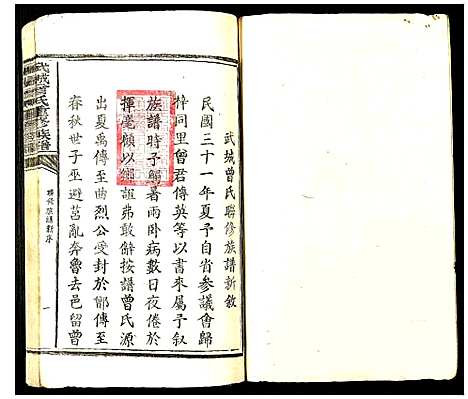 武城曾氏聯修族譜新敘
民國三十一年夏予自省參議會歸
梓同里曾君傳英等以書來屬予叙
族譜時予觸著雨卧病數日夜倦於
揮毫顧以鄉誼弗敢辭按譜曾氏源
出夏禹傳至曲烈公受封於鄫傳至
春秋世子巫避莒亂奔魯去邑留曾
武城曾氏重修族譜
聯修族譜新序
一